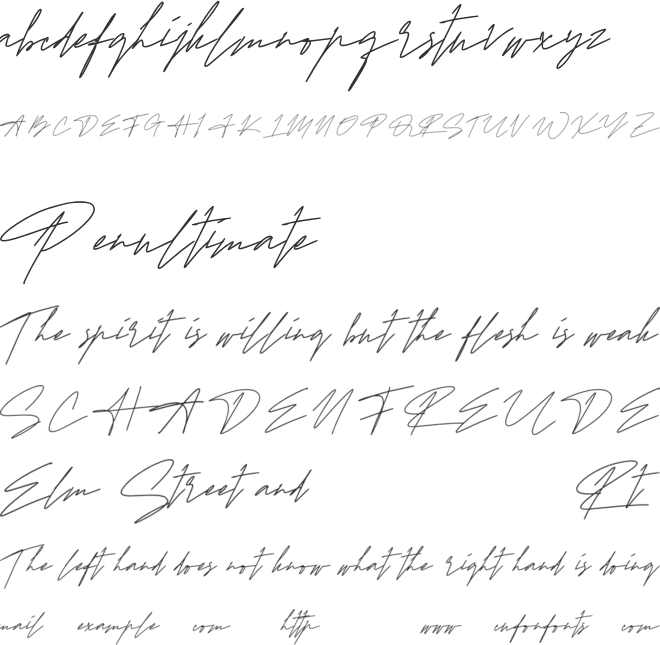 abcdefghijklmnopqrstuvwxyz
ABCDEFGHIJKLMNOPQRSTUVWXYZ
Penultimate
The spirit is willing but the flesh is weak
SCHADENFREUDE
Elm Street and Rt
The left hand does not know what the right hand is doing
mail example com http www cufonfonts com